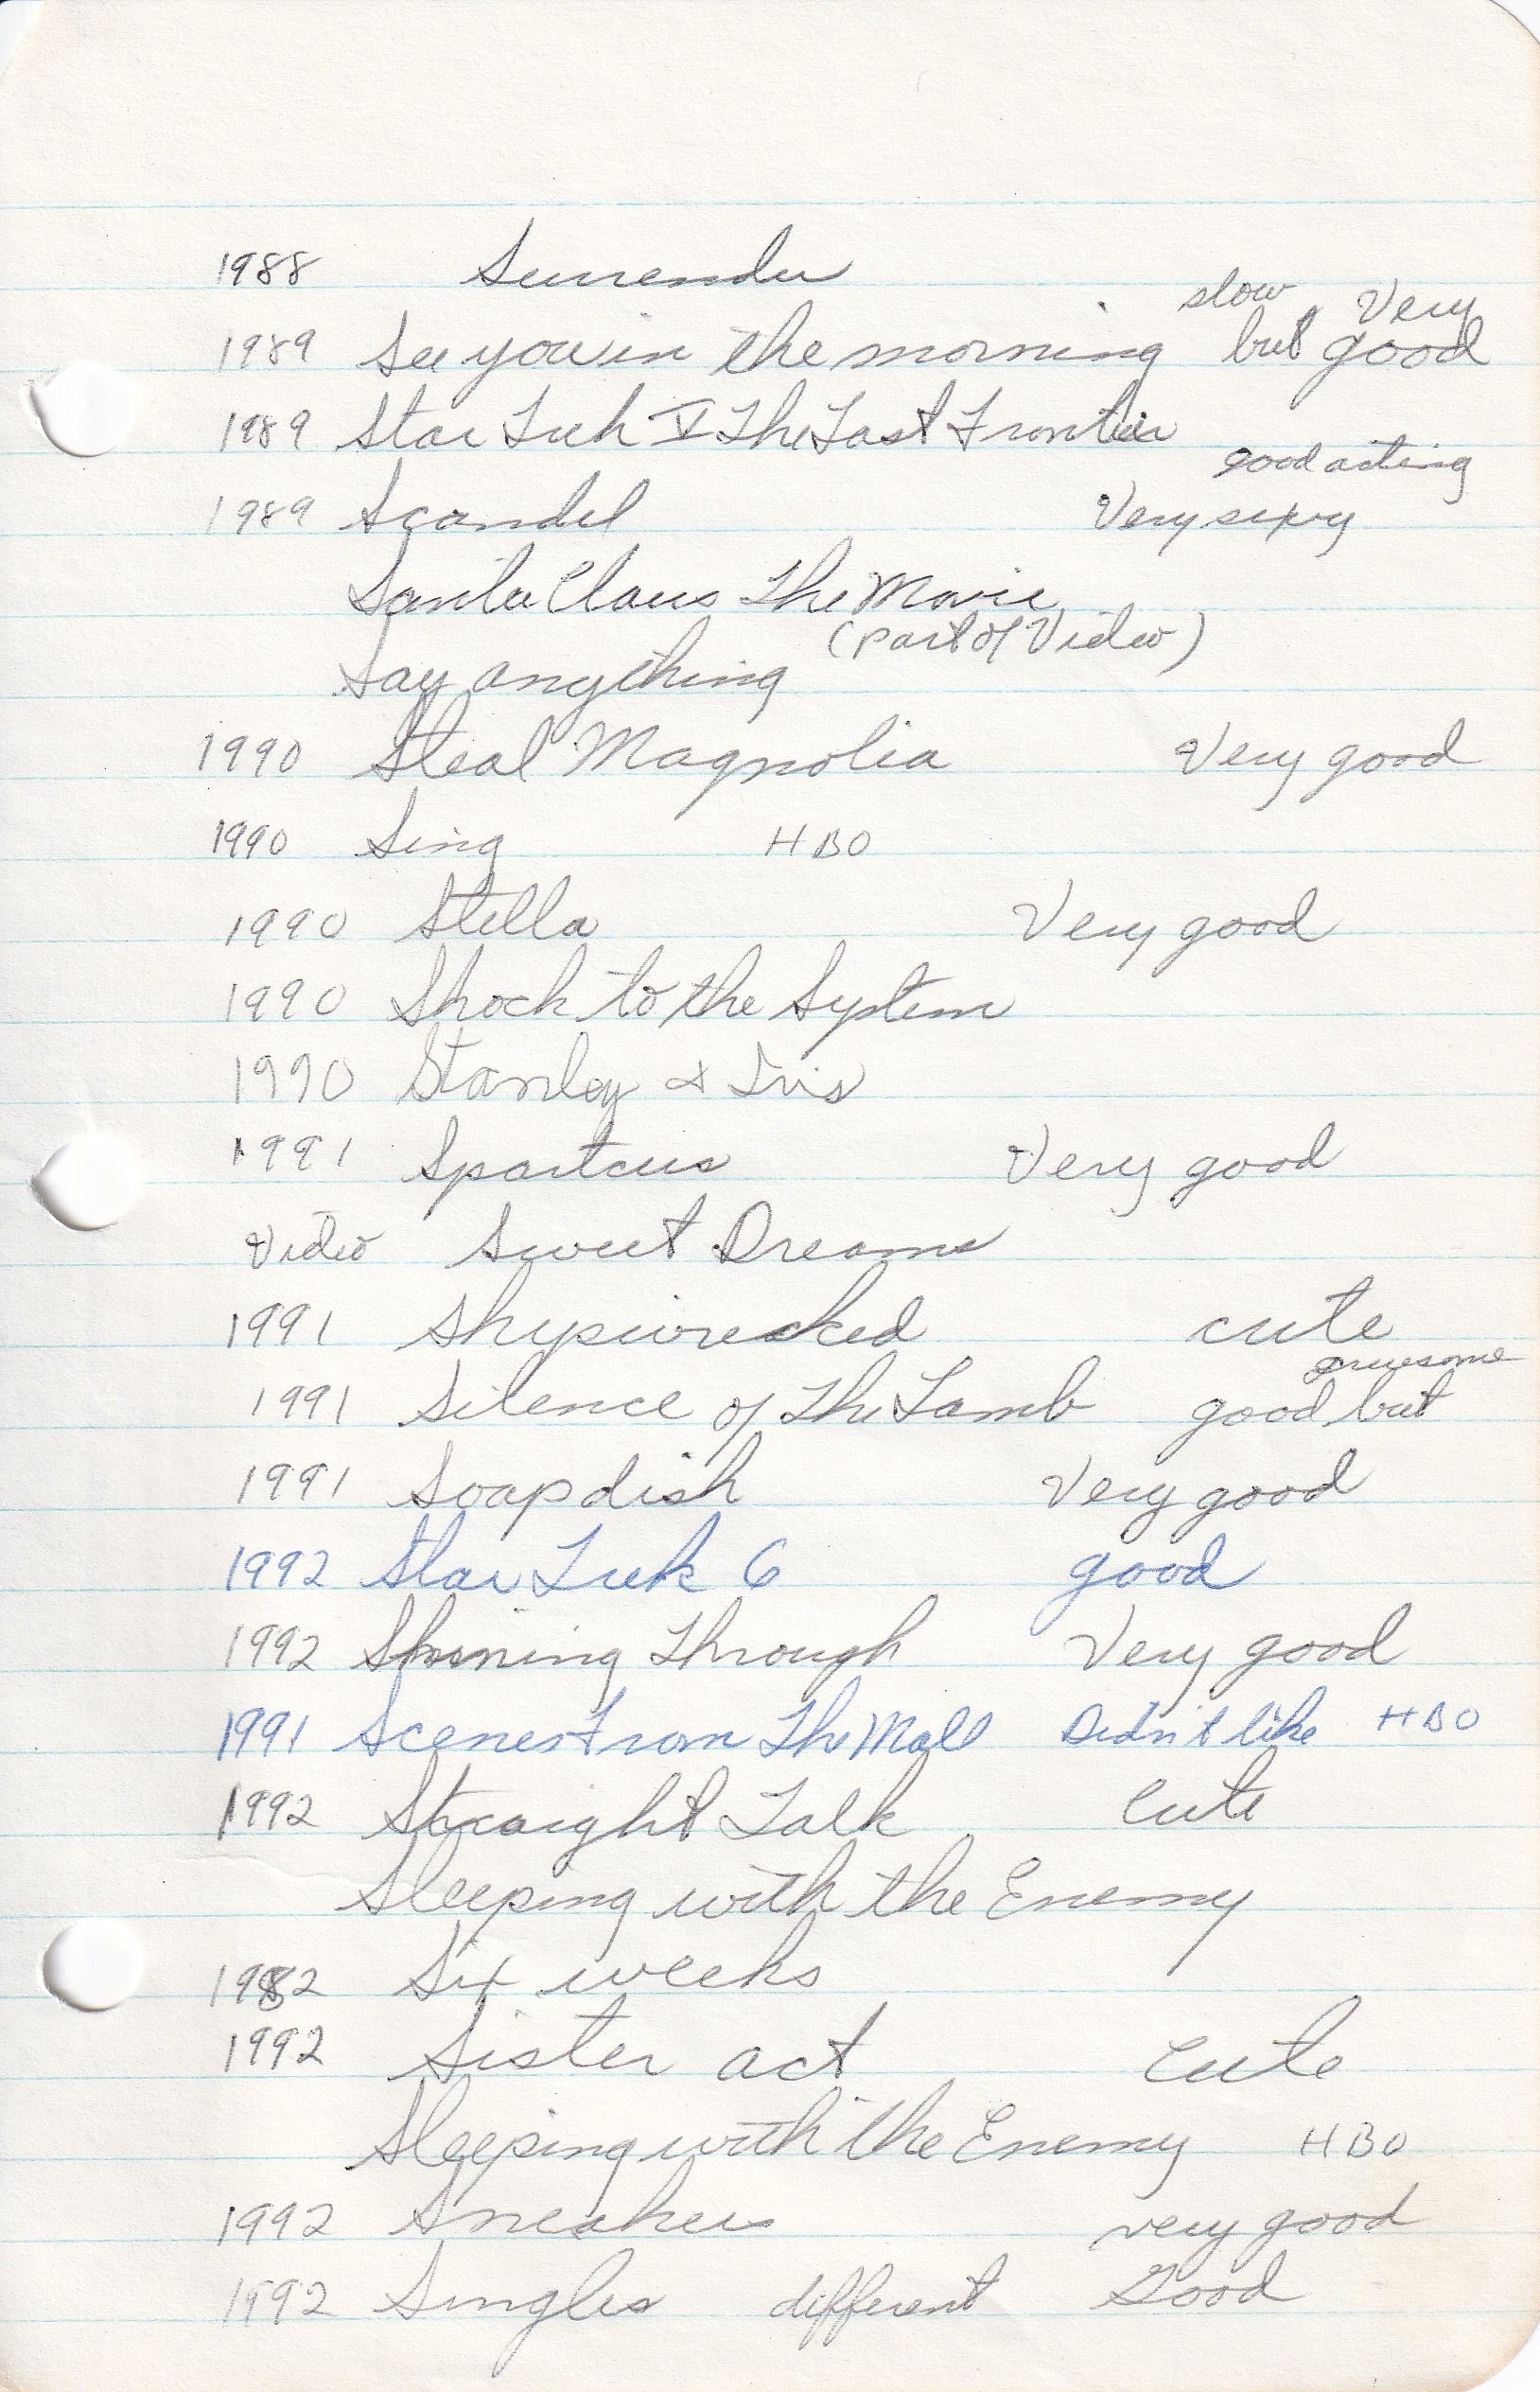 1988 Surrender
1989 See you in the morning slow but Very good
1989 Star Trek V The Last Frontier
1989 Scandel good acting Very sexy
Santa Claus The Movie
(part of Video)
Say anything
1990 Steal Magnolia Very good
1990 Sing HBO
1990 Stella Very good
1990 Shock to the System
1990 Stanley & Iris
1991 Spartcus Very good
Video Sweet Dreams
1991 Shypswrecked cute
1991 Silence of The Lamb good but gruesome
1991 Soapdish Very good
1992 Star Trek 6 good
1992 Shining Through Very good
1991 Scenes From The Mall Didn't like HBO
1992 Straight Talk Cute
Sleeping with the Enemy
1982 Six weeks
1992 Sister act Cute
Sleeping with the Enemy HBO
1992 Sneakers very good
1992 Singles different Good